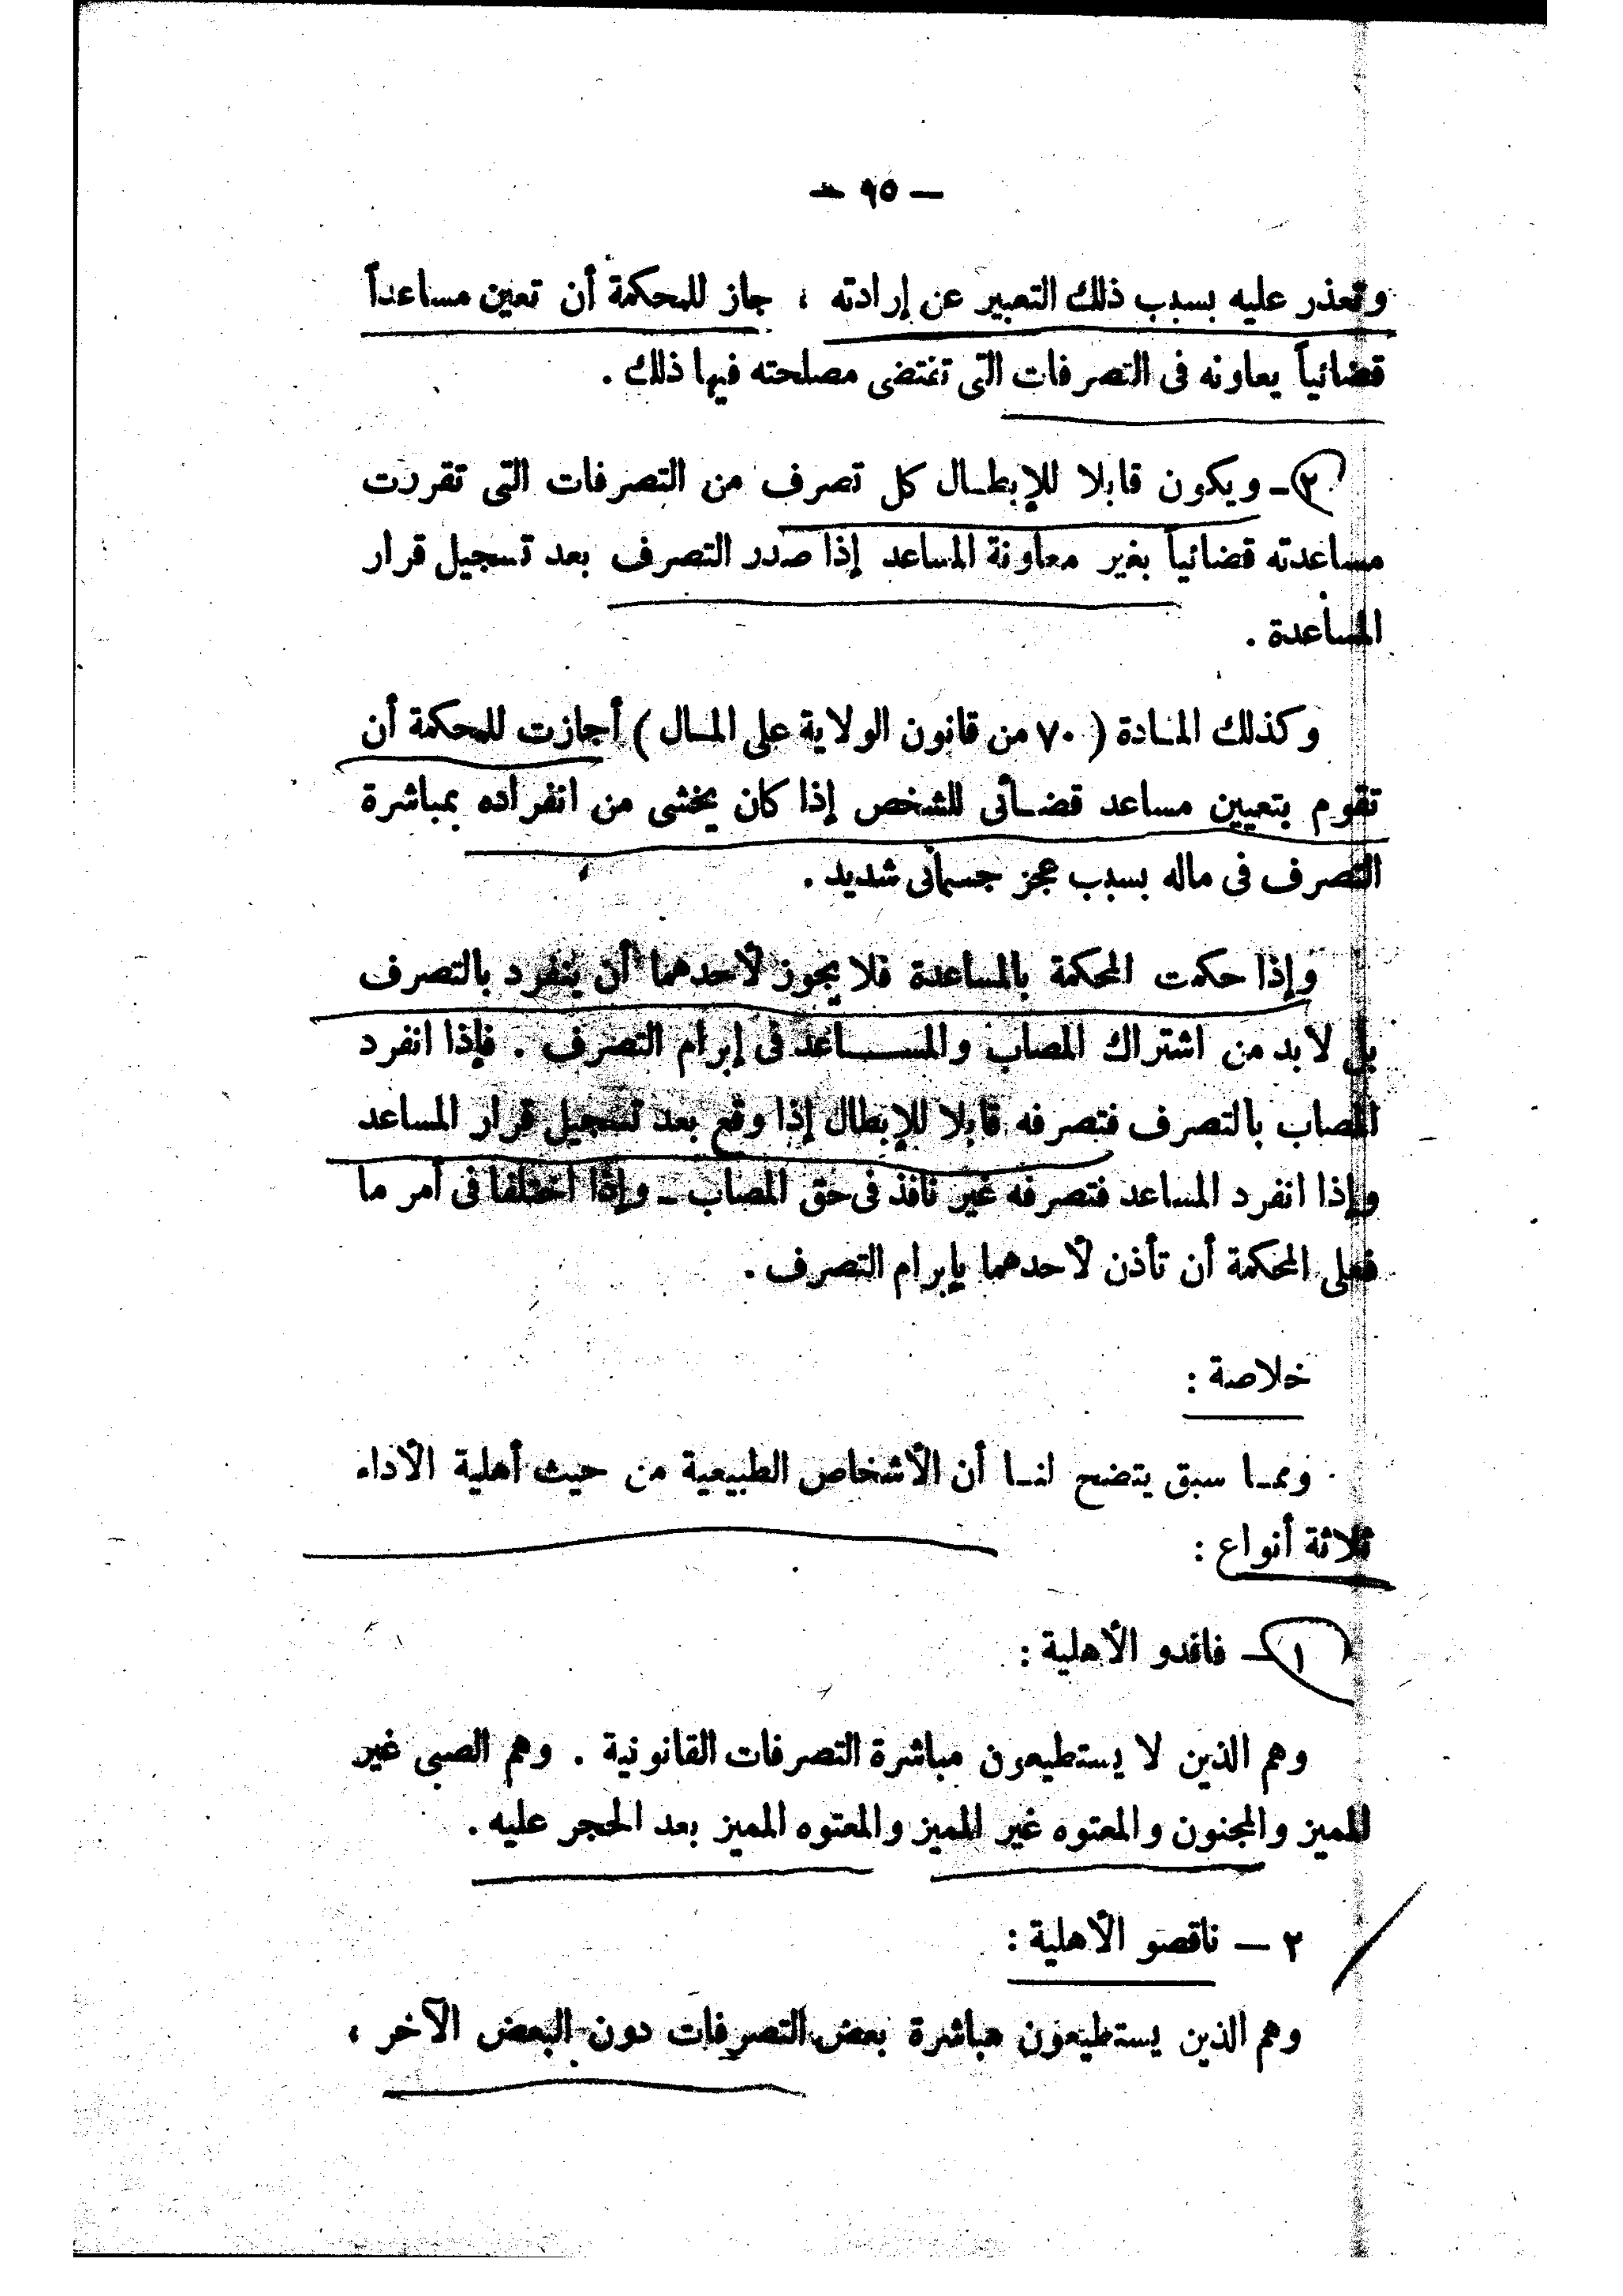 — ٩٥ —
وتعذر عليه بسبب ذلك التعبير عن إرادته ، جاز للمحكمة أن تعين مساعداً
قضائياً يعاونه فى التصرفات التى تقتضى مصلحته فيها ذلك .
٢ـ ويكون قابلا للإبطـال كل تصرف من التصرفات التى تقررت
مساعدته قضائياً بغير معاونة المساعد إذا صدر التصرف بعد تسجيل قرار
المساعدة .
وكذلك المـادة ( ٧٠ من قانون الولاية على المـال ) أجازت للمحكمة أن
تقوم بتعيين مساعد قضـائى للشخص إذا كان يخشى من انفراده بمباشرة
التصرف فى ماله بسبب عجز جسمانى شديد .
وإذا حكمت المحكمة بالمساعدة فلا يجوز لأحدهما أن ينفرد بالتصرف
بل لابد من اشتراك المصاب والمســـاعد فى إبرام التصرف . فإذا انفرد
المصاب بالتصرف فتصرفه قابلا للإبطال إذا وقع بعد تسجيل قرار المساعد
وإذا انفرد المساعد فتصرفه غير نافذ فى حق المصاب ـ وإذا اختلفا فى أمر ما
فعلى المحكمة أن تأذن لأحدهما بإبرام التصرف .
خلاصة :
وممـا سبق يتضح لنـا أن الأشخاص الطبيعية من حيث أهلية الأداء
ثلاثة أنواع :
١ — فاقدو الأهلية :
وهم الذين لا يستطيعون مباشرة التصرفات القانونية . وهم الصبى غير
المميز والمجنون والمعتوه غير المميز والمعتوه المميز بعد الحجر عليه .
٢ — ناقصو الأهلية :
وهم الذين يستطيعون مباشرة بعض التصرفات دون البعض الآخر ،